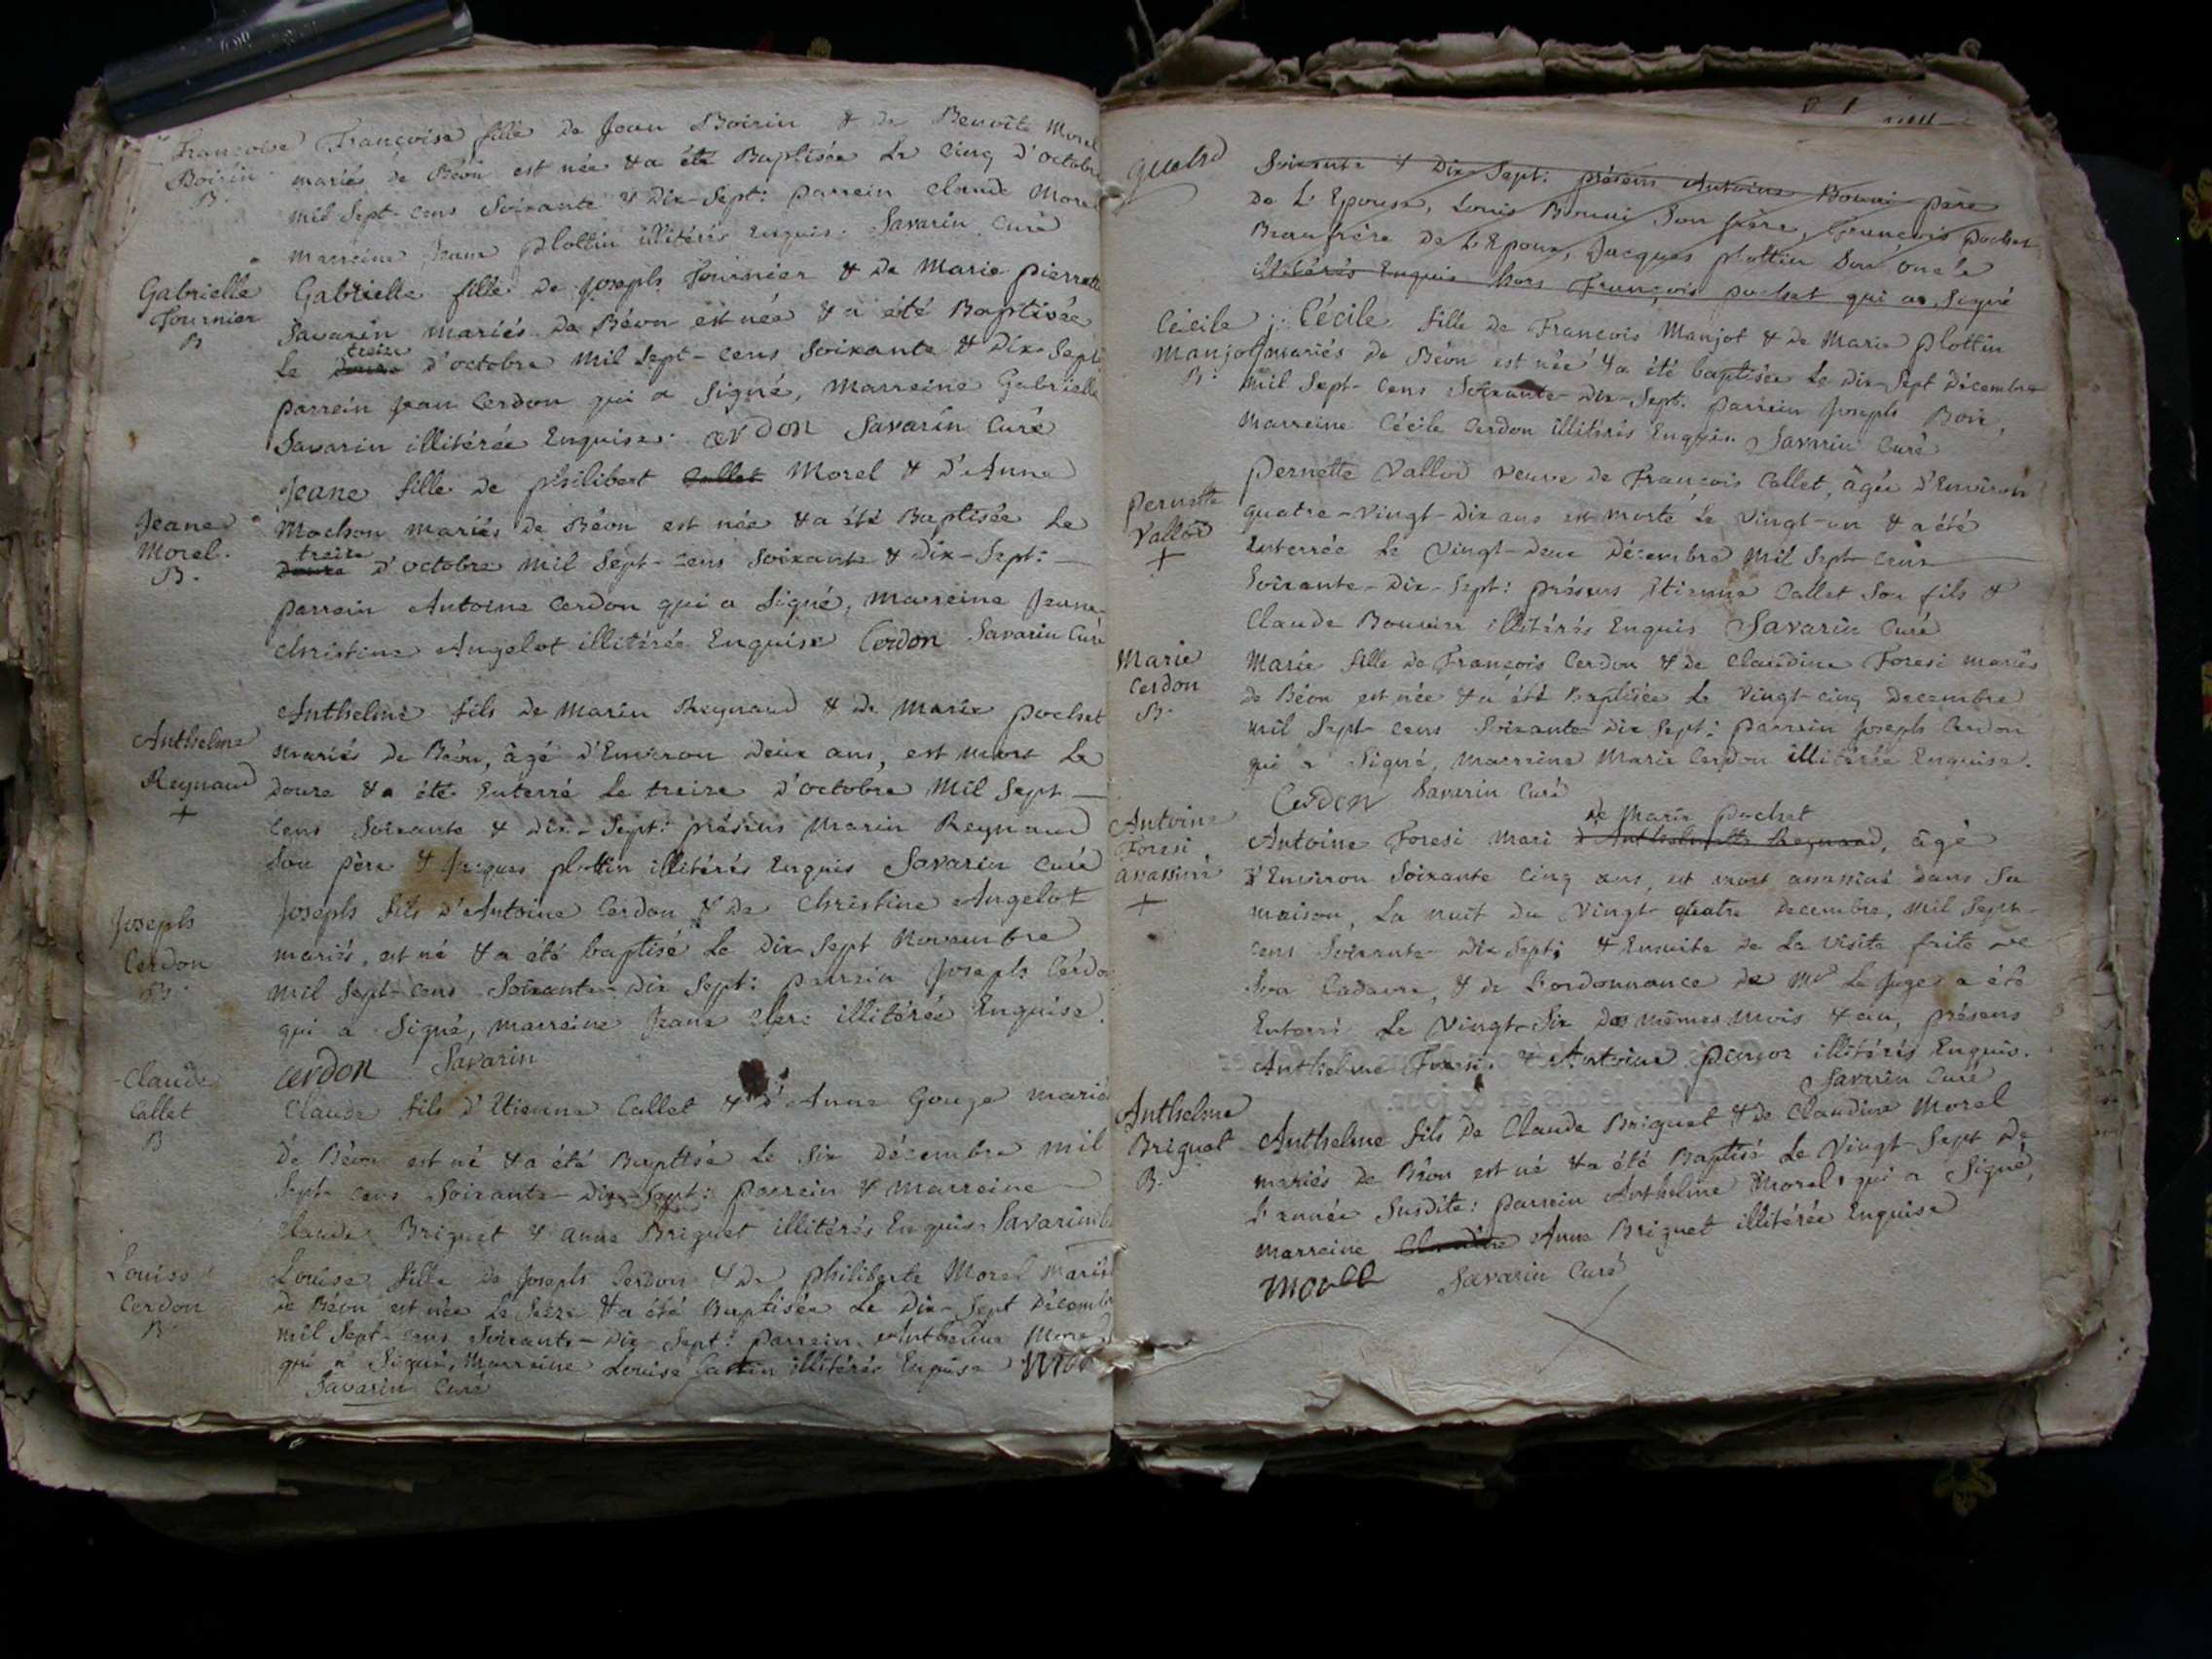 Françoise Boirin B.
Françoise fille de Jean Boirin & de Benoîte Morel
mariés de Béon est née & a été Baptisée Le cinq d'octobre
mil Sept-cens Soixante & Dix-Sept: parrein claude Morel
marreine Jeane plottin illitérés Enquis. Savarin Curé
Gabrielle Fournier B
Gabrielle fille de Joseph Fournier & de Marie pierrette
Savarin mariés de Béon est née & a été Baptisée
Le treize d'octobre mil Sept-cens Soixante & Dix-Sept
parrein Jean Cerdon qui a Signé, marreine Gabrielle
Savarin illitérée Enquise. cerdon Savarin Curé
Jeane Morel. B.
Jeane fille de philibert Callet Morel & d'Anne
Mochon mariés de Béon est née & a été Baptisée Le
treize
Douze d'octobre mil Sept-cens Soixante & Dix-Sept:
parrein Antoine Cerdon qui a Signé, marreine Jeane-
christine Angelot illitérée Enquise Cerdon Savarin Curé
Anthelme Reynaud +
Anthelme fils de Marin Reynaud & de Marie pochet
mariés de Béon, âgé d'Environ deux ans, est mort Le
douze & a été Enterré Le treize d'octobre Mil Sept-
cens Soixante & Dix-Sept: présens Marin Reynaud
Son père & Jacques plottin illitérés Enquis Savarin Curé
Joseph Cerdon B.
Joseph fils d'Antoine Cerdon & de Christine Angelot
mariés, est né & a été baptisé Le Dix-Sept Novembre
mil Sept-cens Soixante-Dix Sept: parrein Joseph Cerdon
qui a Signé, marreine Jeane illitérée Enquise.
cerdon Savarin
Claude Callet B
Claude fils d'Etienne Callet & d'Anne Gouge mariés
de Béon est né & a été Baptisé Le Six Décembre mil
Sept-cens Soixante-Dix-Sept: parrein & marreine
claude Briguet & anne Briguet illitérés Enquis Savarin
Louise Cerdon B.
Louise fille de Joseph Cerdon & de philiberte Morel mariés
de Béon est née Le Seize & a été Baptisée Le Dix-Sept Décembre
mil Sept-cens Soixante-Dix-Sept: parrein Anthelme Morel
qui a Signé, Marreine Louise illitérée Enquise
Savarin Curé
quatre
Soixante & Dix-Sept: présens Antoine Bouvi père
de L'Epouse, Louis Bouvi Son frère, François pochet
Beaufrère de L'Epoux, Jacques plottin Son oncle
illitérés Enquis hors François pochet qui a Signé
Cécile Manjot B.
Cécile fille de François Manjot & de Marie plottin
mariés de Béon est née & a été baptisée Le Dix-Sept Décembre
mil Sept-cens Soixante-Dix-Sept. parrein Joseph
Marreine Cécile Cerdon illitérés Enquis. Savarin Curé
Pernette Vallod +
Pernette Vallod veuve de François Callet, âgée d'Environ
quatre-Vingt-Dix ans est morte Le Vingt-un & a été
Enterrée Le Vingt-Deux Décembre Mil Sept-cens
Soixante-Dix-Sept: présens Etienne Callet Son fils &
Claude illitérés Enquis Savarin Curé
Marie Cerdon B.
Marie fille de François Cerdon & de claudine Foresi mariés
de Béon est née & a été Baptisée Le Vingt-cinq Decembre
mil Sept-cens Soixante Dix Sept: parrein Joseph Cerdon
qui a Signé, marreine Marie Cerdon illitérée Enquise.
Cerdon Savarin Curé
Antoine Foresi assassiné +
de Marie pochet
Antoine Foresi mari d'Anthelmette Reynaud, âgé
d'Environ Soixante cinq ans, est mort assassiné dans Sa
maison, La nuit du Vingt quatre Decembre, mil Sept-
cens Soixante-Dix Sept; & Ensuite de La visite faite de
Son Cadavre, & de L'ordonnance de Mr Le Juge a été
Enterré Le Vingt-Six des mêmes mois & an, présens
Anthelme Foresi & Antoine illitérés Enquis.
Savarin Curé
Anthelme Briguet B.
Anthelme fils de Claude Briguet & de Claudine Morel
mariés de Béon est né & a été Baptisé Le Vingt-Sept de
L'année Susdite: parrein Anthelme Morel qui a Signé,
marreine Claudine Anne Briguet illitérée Enquise
Morel Savarin Curé